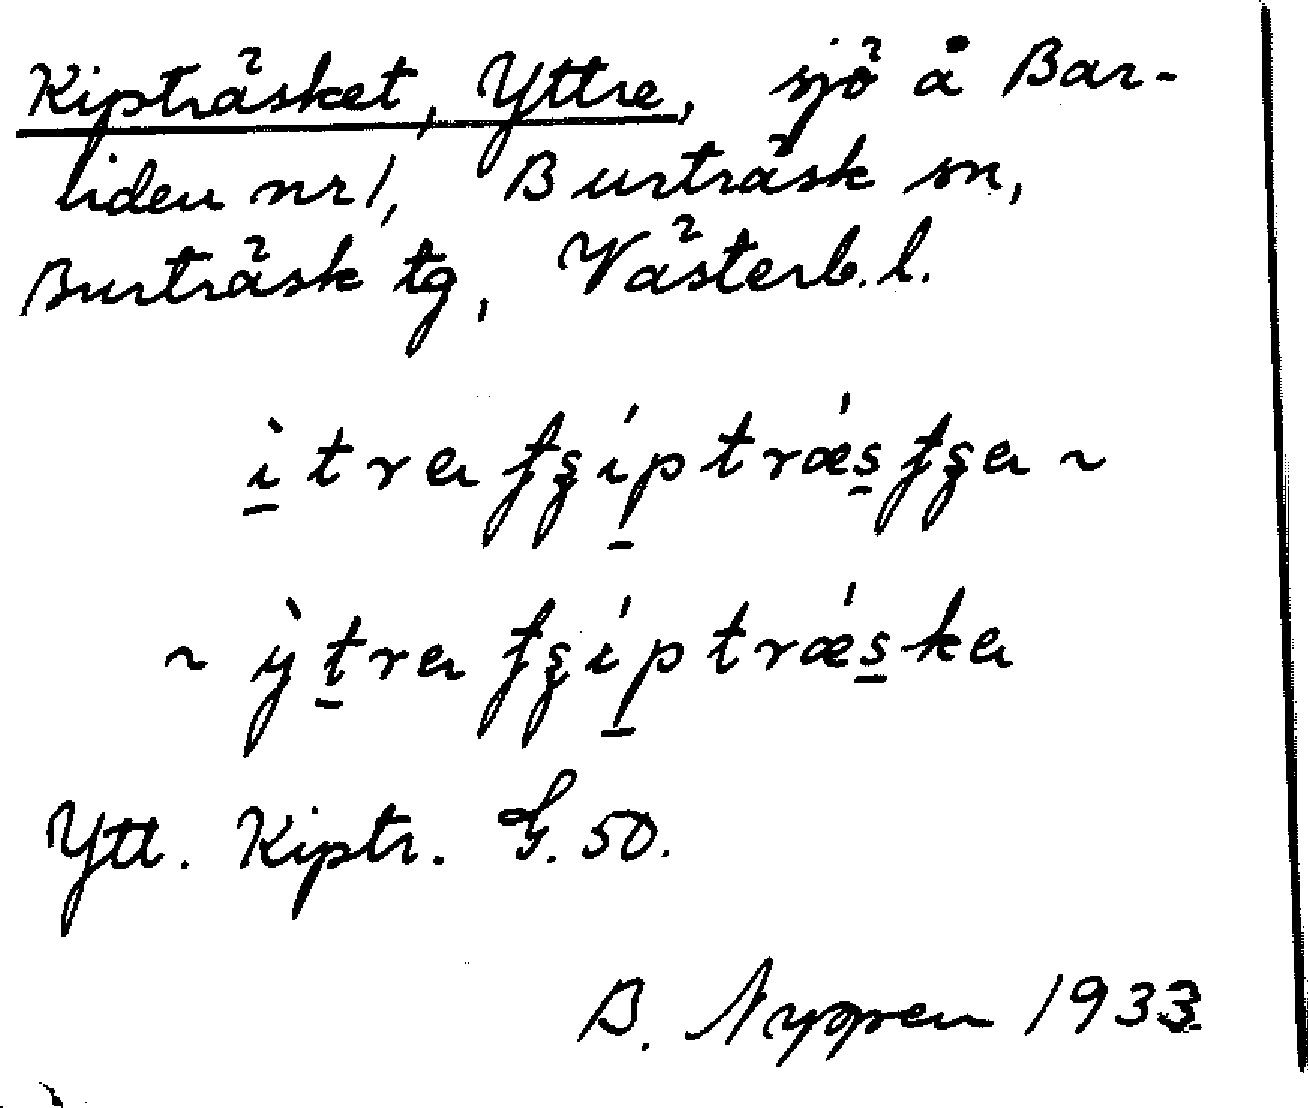 Kipträsket, Yttre, sjö å Bar-
liden nr 1, Burträsk sn,
Burträsk tg, Västerb. l.
ìtra tʂíptrǽstʂa ~
~ ỳtra tʂíptrǽska
Ytt. Kiptr. G. 50.
B. Nyppen 1933